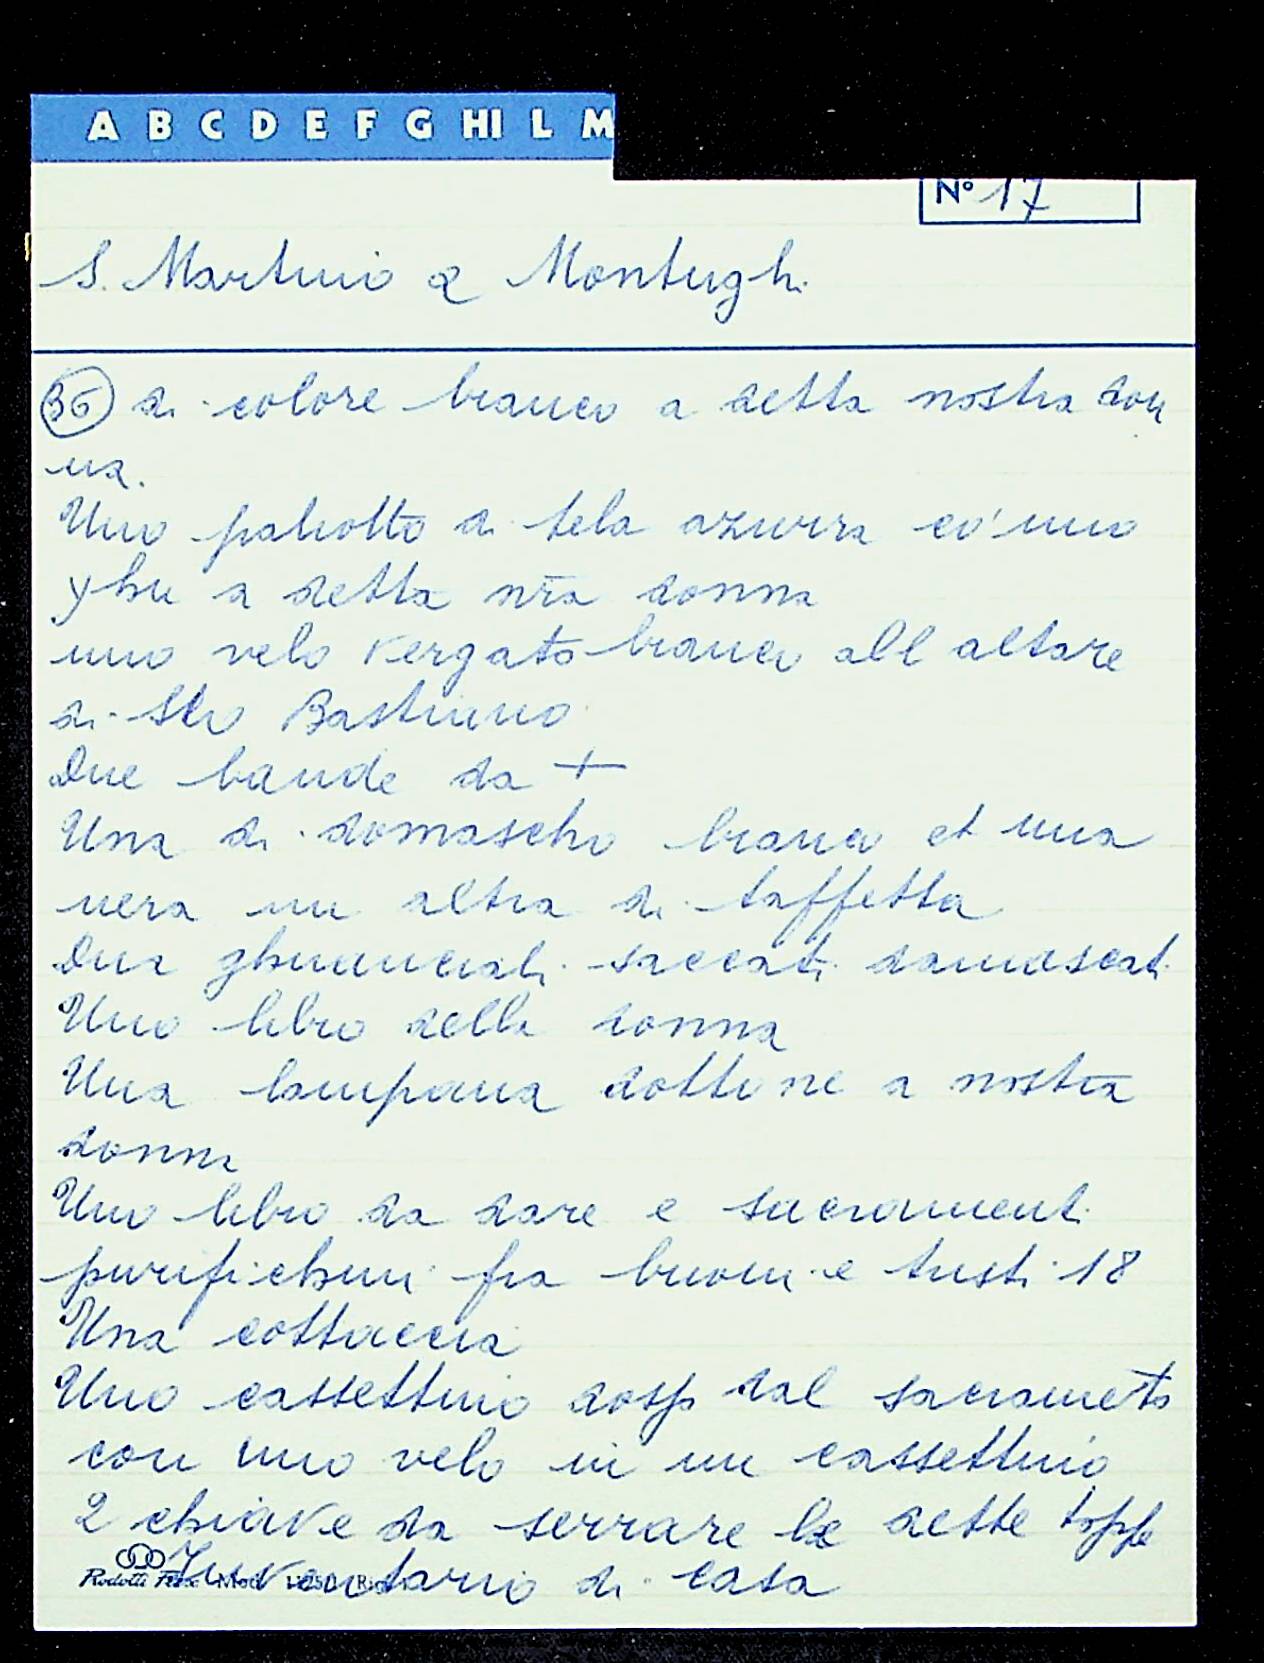 A B C D E F G HI L M
N° 17
S. Martino a Montughi
36 di colore branco a detta nostra don
na.
Uno paliotto di tela azurra co' uno
yhu a detta nr̄a donna
uno velo vergato branco all altare
di Sto Bastiano
Due bande da +
Una di domascho branco et una
nera un altra di taffetta
Dua ghuanciali saccati damascati
Uno libro della donna
Una lampana dottone a nostra
donna
Uno libro da dare e sacramenti
purifichini fra buoni e tristi 18
Una cottaccia
Uno cassettino dosp dal sacrameto
con uno velo in un cassettino
2 chiave da serrare le dette toppe
Inventario di casa